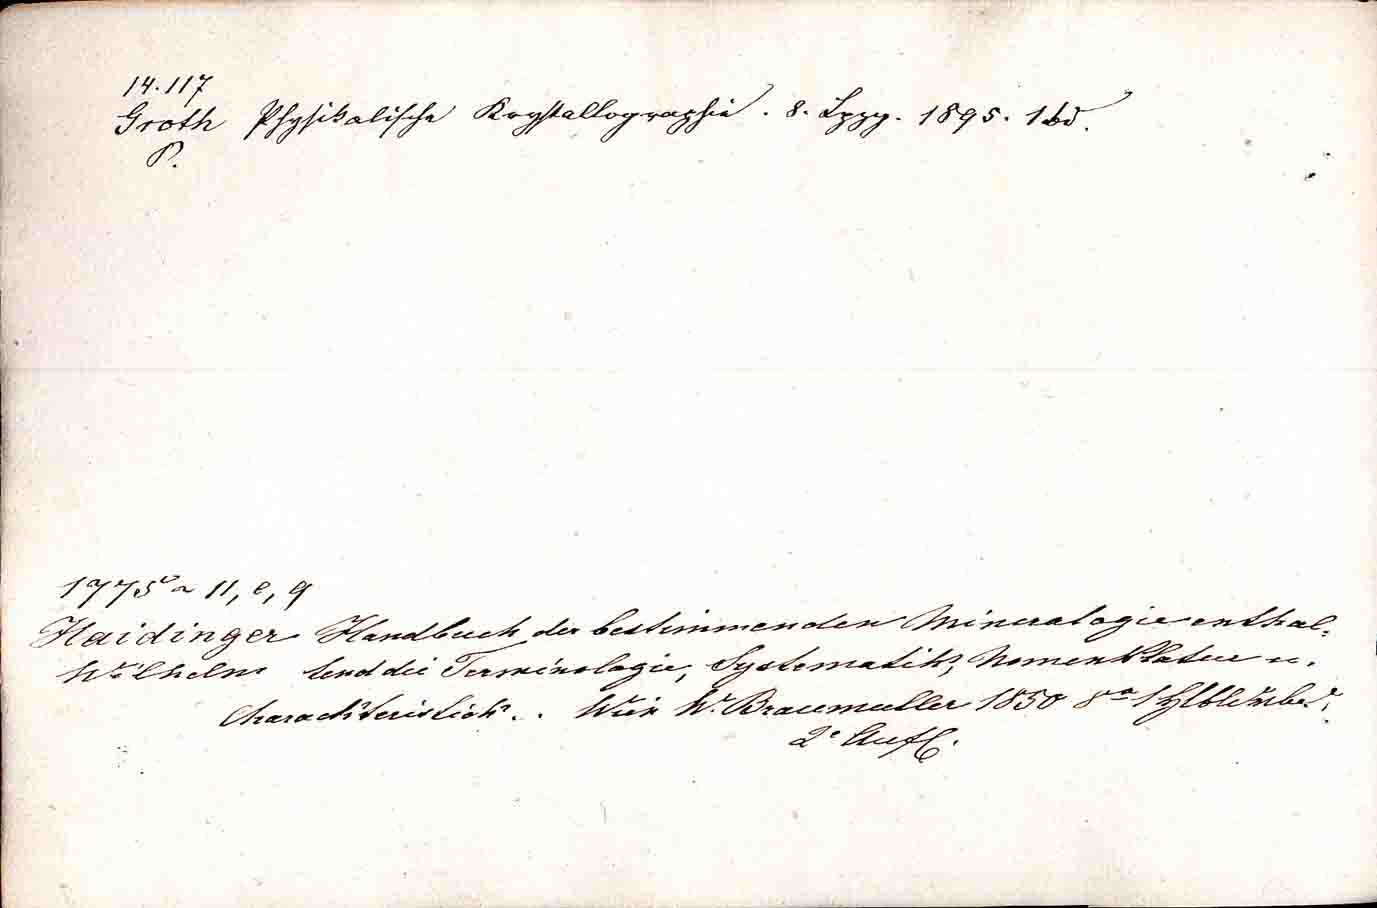 14.117
Groth Physikalische Krystallographie. 8. Lpzg. 1895. 1 bd.
P.
1775 ~ 11, e, 9
Haidinger Handbuch der bestimmenden Mineralogie enthal-
Wilhelm tend die Terminologie, Systematik, Nomenklatur u.
Charackteristick. Wien W. Braumuller 1850 8° 1 Hlbldrbd.
2e Aufl.